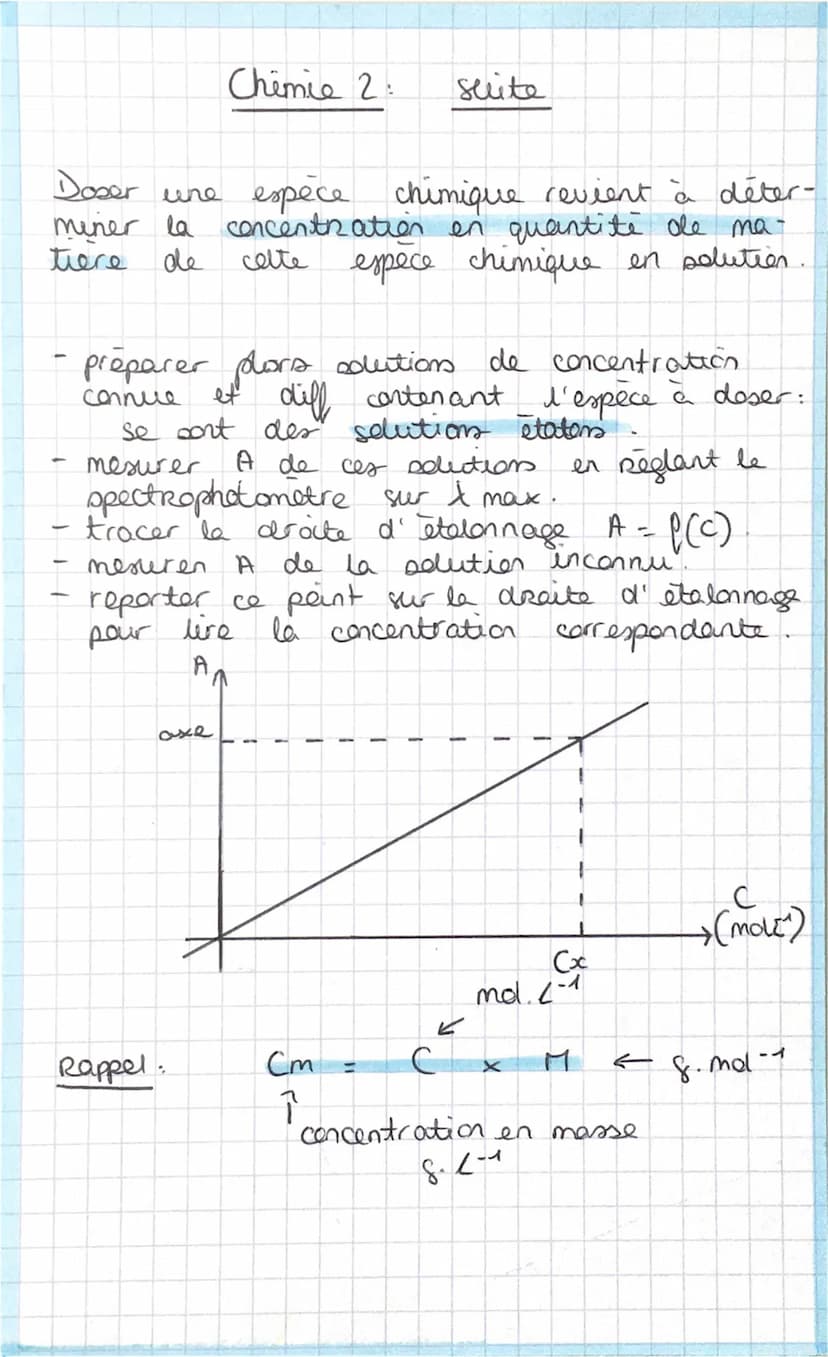 Chimie 2 : suite
Doser une espèce chimique revient à déter-
miner la concentration en quantité de ma-
tière de cette espèce chimique en solution.
- préparer plors solutions de concentration
connue et diff contenant l'espèce à doser :
se sont des solutions étalons.
- mesurer A de ces solutions en réglant le
spectrophotomètre sur λ max.
- tracer la droite d'étalonnage A = f(C).
- mesurer A de la solution inconnu.
- reporter ce point sur la droite d'étalonnage
pour lire la concentration correspondante.
A
axe
C
(mol.L⁻¹)
Cx
mol.L⁻¹
Rappel : Cm = C x M ← g.mol⁻¹
concentration en masse
g.L⁻¹